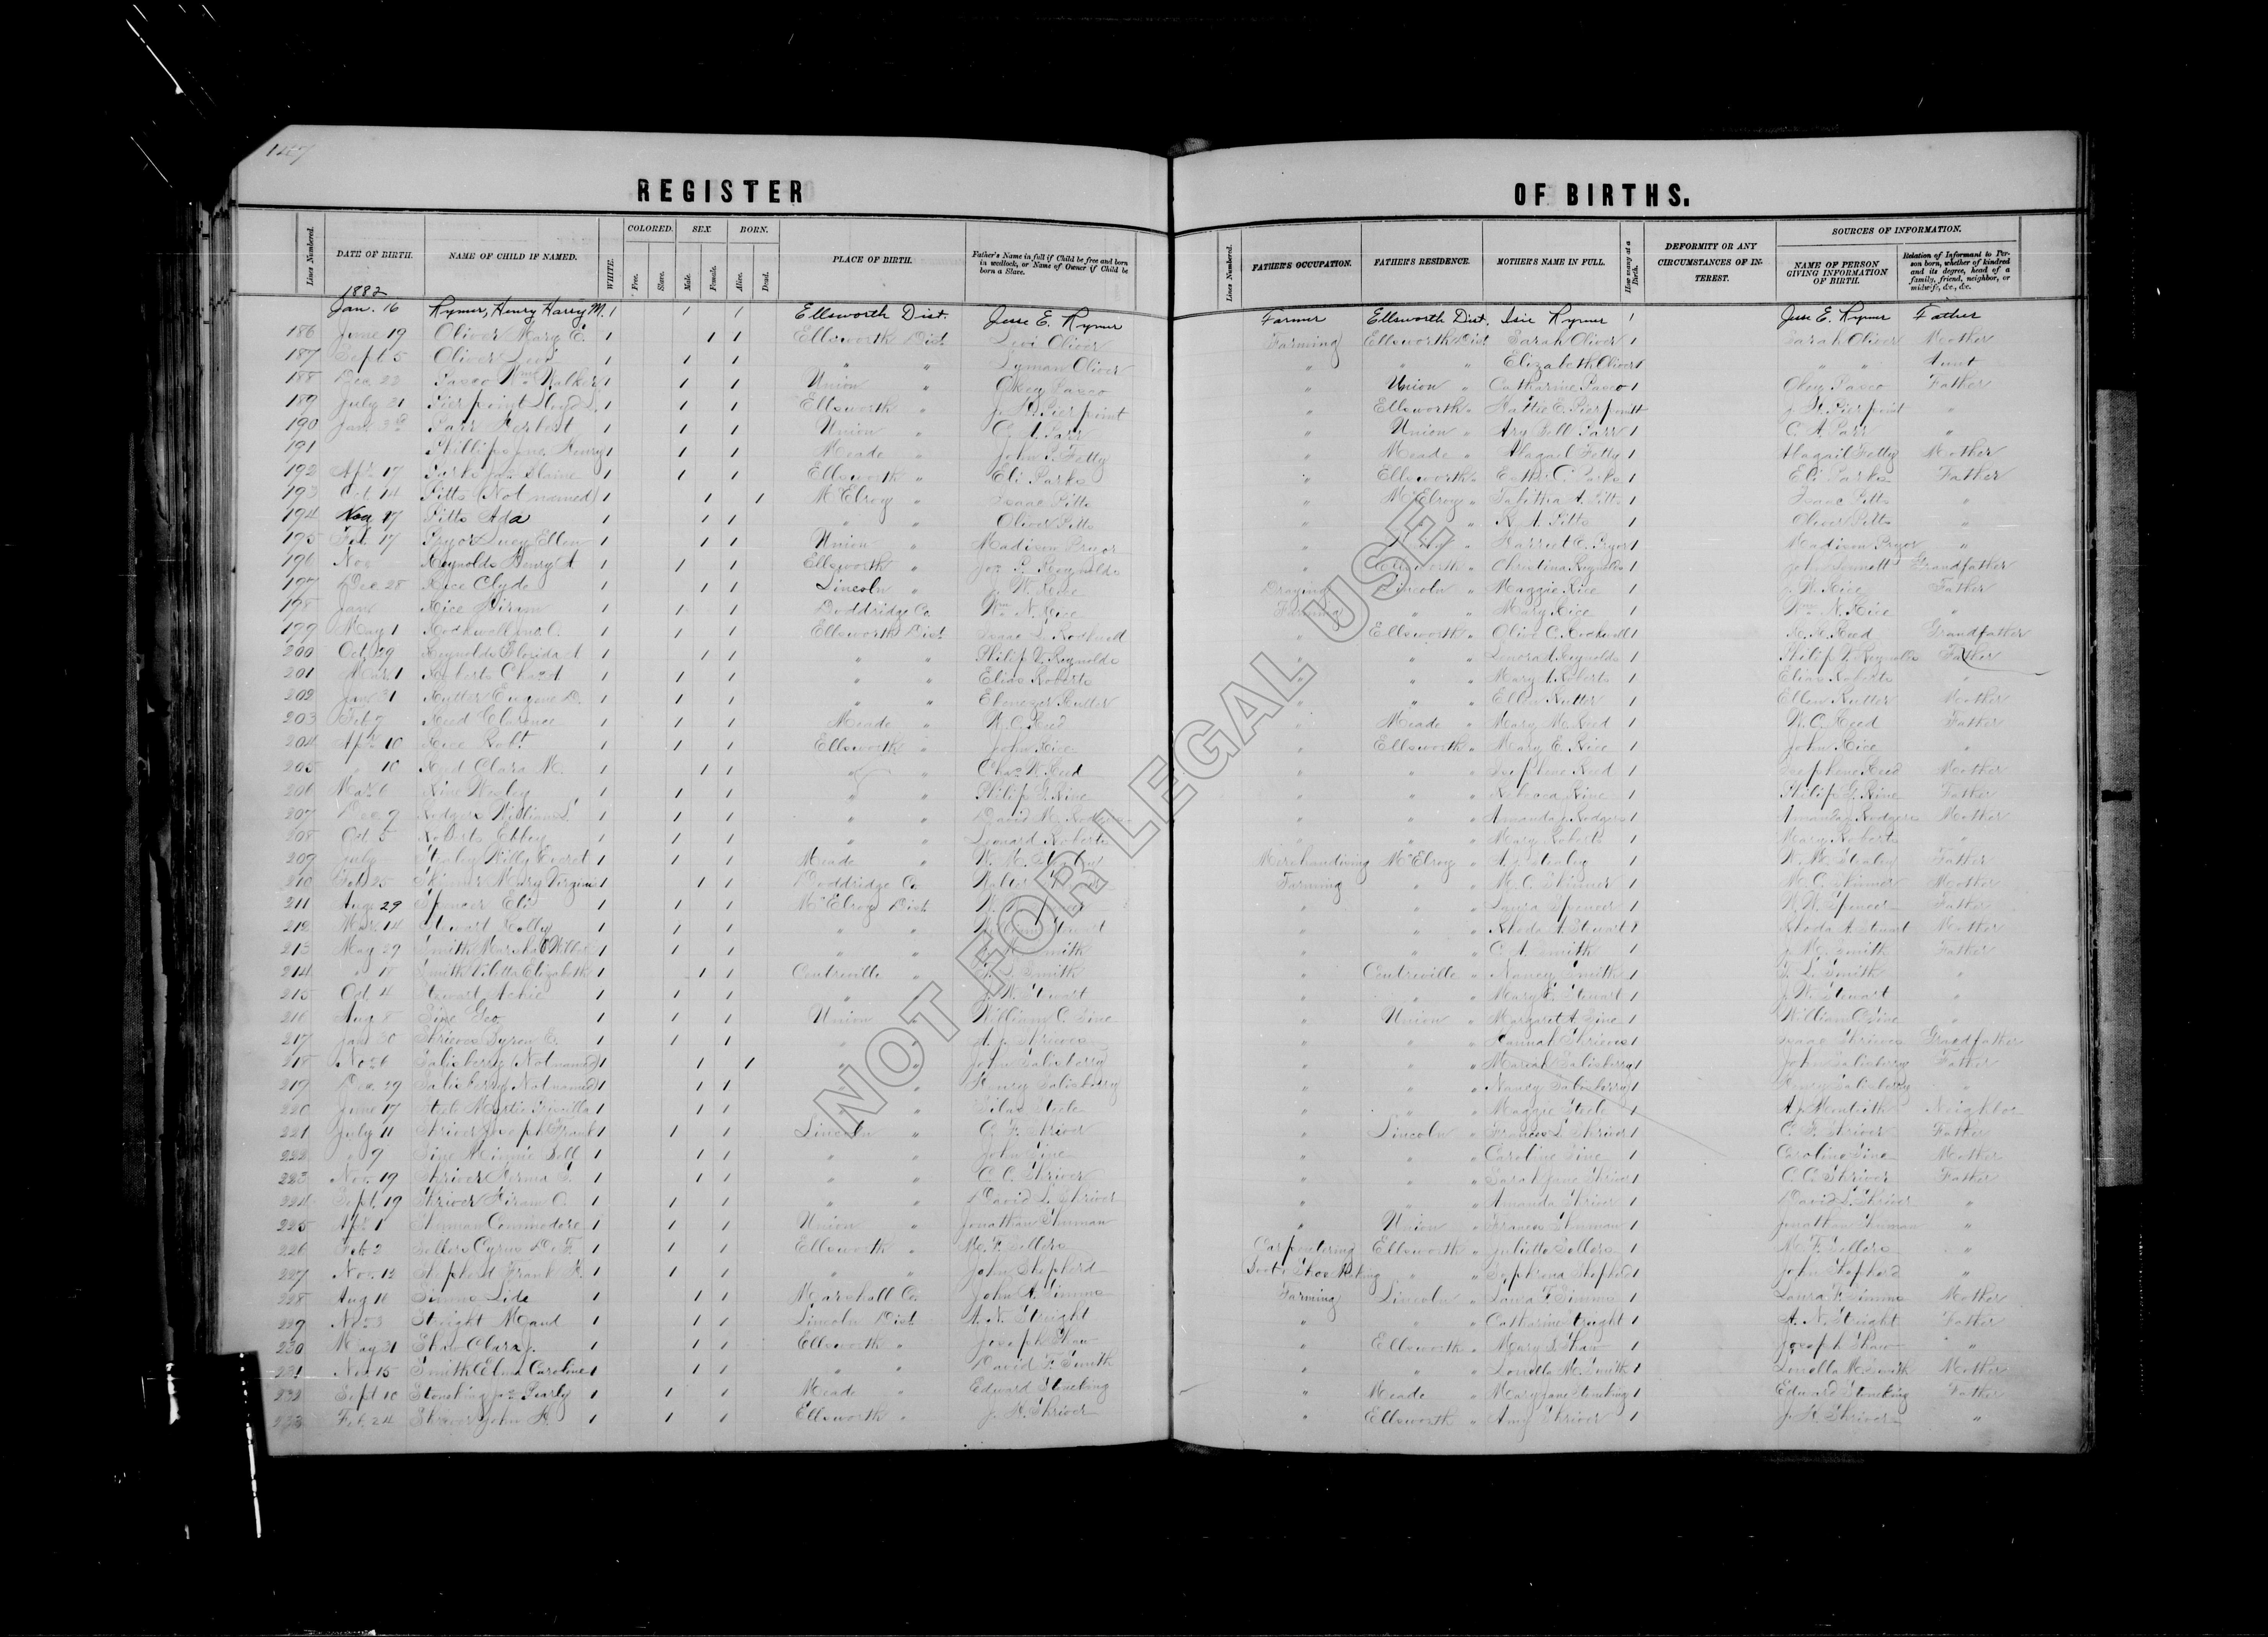 147
REGISTER OF BIRTHS.
Lines Numbered. DATE OF BIRTH. NAME OF CHILD IF NAMED. WHITE. COLORED. Free. Slave. SEX. Male. Female. BORN. Alive. Dead. PLACE OF BIRTH. Father's Name in full if Child be free and born in wedlock, or Name of Owner if Child be born a Slave. Lines Numbered. FATHER'S OCCUPATION. FATHER'S RESIDENCE. MOTHER'S NAME IN FULL. How many at a Birth. DEFORMITY OR ANY CIRCUMSTANCES OF INTEREST. SOURCES OF INFORMATION. NAME OF PERSON GIVING INFORMATION OF BIRTH. Relation of Informant to Person born, whether of kindred and its degree, head of a family, friend, neighbor, or midwife, &c., &c.
1882
Jan. 16 Rymer, Henry Harry M. 1 1 1 Ellsworth Dist. Jesse E. Rymer Farmer Ellsworth Dist. Isie Rymer 1 Jesse E. Rymer Father
186 June 19 Oliver Mary E. 1 1 1 Ellsworth Dist Levi Oliver Farming Ellsworth Dist Sarah Oliver 1 Sarah Oliver Mother
187 Sept 5 Oliver Levi 1 1 1 " " Lyman Oliver " " " Elizabeth Oliver 1 " " Aunt
188 Dec 22 Pasco Wm Walker 1 1 1 Union " Okey Pasco " Union " Catharine Pasco 1 Okey Pasco Father
189 July 21 Pierpoint Lloyd L. 1 1 1 Ellsworth " J. H. Pierpoint " Ellsworth " Hattie E. Pierpoint 1 J. H. Pierpoint "
190 Jan. 3rd Parr Herbert 1 1 1 Union " C. A. Parr " Union " Ary Bell Parr 1 C. A. Parr "
191 Phillips Henry 1 1 1 Meade " John P. Fetty " Meade " Abagail Fetty 1 Abagail Fetty Mother
192 Apr. 17 Parks Jas. Blaine 1 1 1 Ellsworth " Eli Parks " Ellsworth " Esther C. Parks 1 Eli Parks Father
193 Oct. 14 Pitts (Not named) 1 1 1 McElroy " Isaac Pitts " McElroy " Tabitha A. Pitts 1 Isaac Pitts "
194 17 Pitts Ada 1 1 1 " " Oliver Pitts " " " R. A. Pitts 1 Oliver Pitts "
195 Feb. 17 Pryor Lucy Ellen 1 1 1 Union " Madison Pryor " " Harriet E. Pryor 1 Madison Pryor "
196 Nov Reynolds Henry A 1 1 1 Ellsworth " Jos. P. Reynolds " Ellsworth " Christina Reynolds 1 John Grandfather
197 Dec 28 Rice Clyde 1 1 1 Lincoln " J. W. Rice Draying Lincoln " Maggie Rice 1 J. W. Rice Father
198 Jan Rice Hiram 1 1 1 Doddridge Co. Wm. N. Rice Farming " " Mary Rice 1 Wm. N. Rice "
199 May 1 Rockwell O. 1 1 1 Ellsworth Dist Isaac L. Rockwell " Ellsworth " Olive C. Rockwell 1 Reed Grandfather
200 Oct. 29 Reynolds Florida A 1 1 1 " " Philip V. Reynolds " " " Lenora A. Reynolds 1 Philip V. Reynolds Father
201 Mar. 1 Roberts Chas. A 1 1 1 " " Elias Roberts " " " Mary A. Roberts 1 Elias Roberts "
202 Jan 31 Rutter Eugene D. 1 1 1 " " Ebenezer Rutter " " " Ellen Rutter 1 Ellen Rutter Mother
203 Feb. 7 Reed Clarence 1 1 1 Meade " W. C. Reed " Meade " Mary M. Reed 1 W. C. Reed Father
204 Apr. 10 Rice Robt. 1 1 1 Ellsworth " John Rice " Ellsworth " Mary E. Rice 1 John Rice "
205 " 10 Reed Clara M. 1 1 1 " " Chas. W. Reed " " " Josephine Reed 1 Josephine Reed Mother
206 Mar. 6 Rine Wesley 1 1 1 " " Philip G. Rine " " " Rebecca Rine 1 Philip G. Rine Father
207 Dec. 9 Rodgers William L. 1 1 1 " " David M. Rodgers " " " Amanda J. Rodgers 1 Amanda J. Rodgers Mother
208 Oct. 5 Roberts Ebbey 1 1 1 " " Leonard Roberts " " " Mary Roberts 1 Mary Roberts "
209 July Stealey Willy Everet 1 1 1 Meade " W. M. Stealey Merchandising McElroy " A. J. Stealey 1 W. M. Stealey Father
210 Feb. 25 Skinner Mary Virginia 1 1 1 Doddridge Co. Walter Farming " " M. C. Skinner 1 M. C. Skinner Mother
211 Aug. 29 Spencer Eli 1 1 1 McElroy Dist. W. W. Spencer " " " Laura Spencer 1 W. W. Spencer Father
212 Mar. 14 Stewart Colby 1 1 1 " " Stewart " " " Rhoda A. Stewart 1 Rhoda A. Stewart Mother
213 May 29 Smith Marshall Wilber 1 1 1 " " Smith " " " C. A. Smith 1 J. M. Smith Father
214 " 18 Smith Viletta Elizabeth 1 1 1 Centreville " F. L. Smith " Centreville " Nancy Smith 1 F. L. Smith "
215 Oct. 4 Stewart Achie 1 1 1 " " J. W. Stewart " " " Mary E. Stewart 1 J. W. Stewart "
216 Aug. 8 Sine Geo. 1 1 1 Union " William C. Sine " Union " Margaret A. Sine 1 William C Sine "
217 Jan 30 Shrieves Byron E. 1 1 1 " " A. J. Shrieves " " " Hannah Shrieves 1 Isaac Shrieves Grandfather
218 Nov. 6 Salisberry (Not named) 1 1 1 " " John Salisberry " " " Mariah Salisberry 1 John Salisberry Father
219 Dec. 29 Salisberry (Not named) 1 1 1 " " Henry Salisberry " " " Nancy Salisberry 1 Henry Salisberry "
220 June 17 Steele Myrtie Priscilla 1 1 1 " " Silas Steele " " " Maggie Steele 1 A. J. Neighbor
221 July 11 Shriver Joseph Frank 1 1 1 Lincoln " C. F. Shriver " Lincoln " Frances L. Shriver 1 C. F. Shriver Father
222 " 9 Sine Minnie Bell 1 1 1 " " John Sine " " " Caroline Sine 1 Caroline Sine Mother
223 Nov. 19 Shriver Norma 1 1 1 " " C. C. Shriver " " " Sarah Jane Shriver 1 C. C. Shriver Father
224 Sept. 19 Shriver Hiram O. 1 1 1 " " David L. Shriver " " " Amanda Shriver 1 David L. Shriver "
225 Apr. 1 Shuman Commodore 1 1 1 Union " Jonathan Shuman " Union " Frances Shuman 1 Jonathan Shuman "
226 Feb. 2 Sellers Cyrus De F. 1 1 1 Ellsworth " M. F. Sellers Carpentering Ellsworth " Julietta Sellers 1 M. F. Sellers "
227 Nov. 12 Shepherd Frank H. 1 1 1 " " John Shepherd Boot & Shoe Making " " Sophrona Shepherd 1 John Shepherd "
228 Aug 18 Simms Lide 1 1 1 Marshall Co. John A. Simms Farming Lincoln " Laura F. Simms 1 Laura F. Simms Mother
229 Nov 3 Streight Maud 1 1 1 Lincoln Dist. A. N. Streight " " " Catharine Streight 1 A. N. Streight Father
230 May 31 Shaw Clara J. 1 1 1 Ellsworth " Joseph Shaw " Ellsworth " Mary S. Shaw 1 Joseph Shaw "
231 Nov. 15 Smith Elma Caroline 1 1 1 " " David F. Smith " " " Louella M. Smith 1 Louella M. Smith Mother
232 Sept 10 Stoneking Jas. Pearly 1 1 1 Meade " Edward Stoneking " Meade " Mary Jane Stoneking 1 Edward Stoneking Father
233 Feb. 24 Shriver John H. 1 1 1 Ellsworth " J. H. Shriver " Ellsworth " Amy Shriver 1 J. H. Shriver "
NOT FOR LEGAL USE